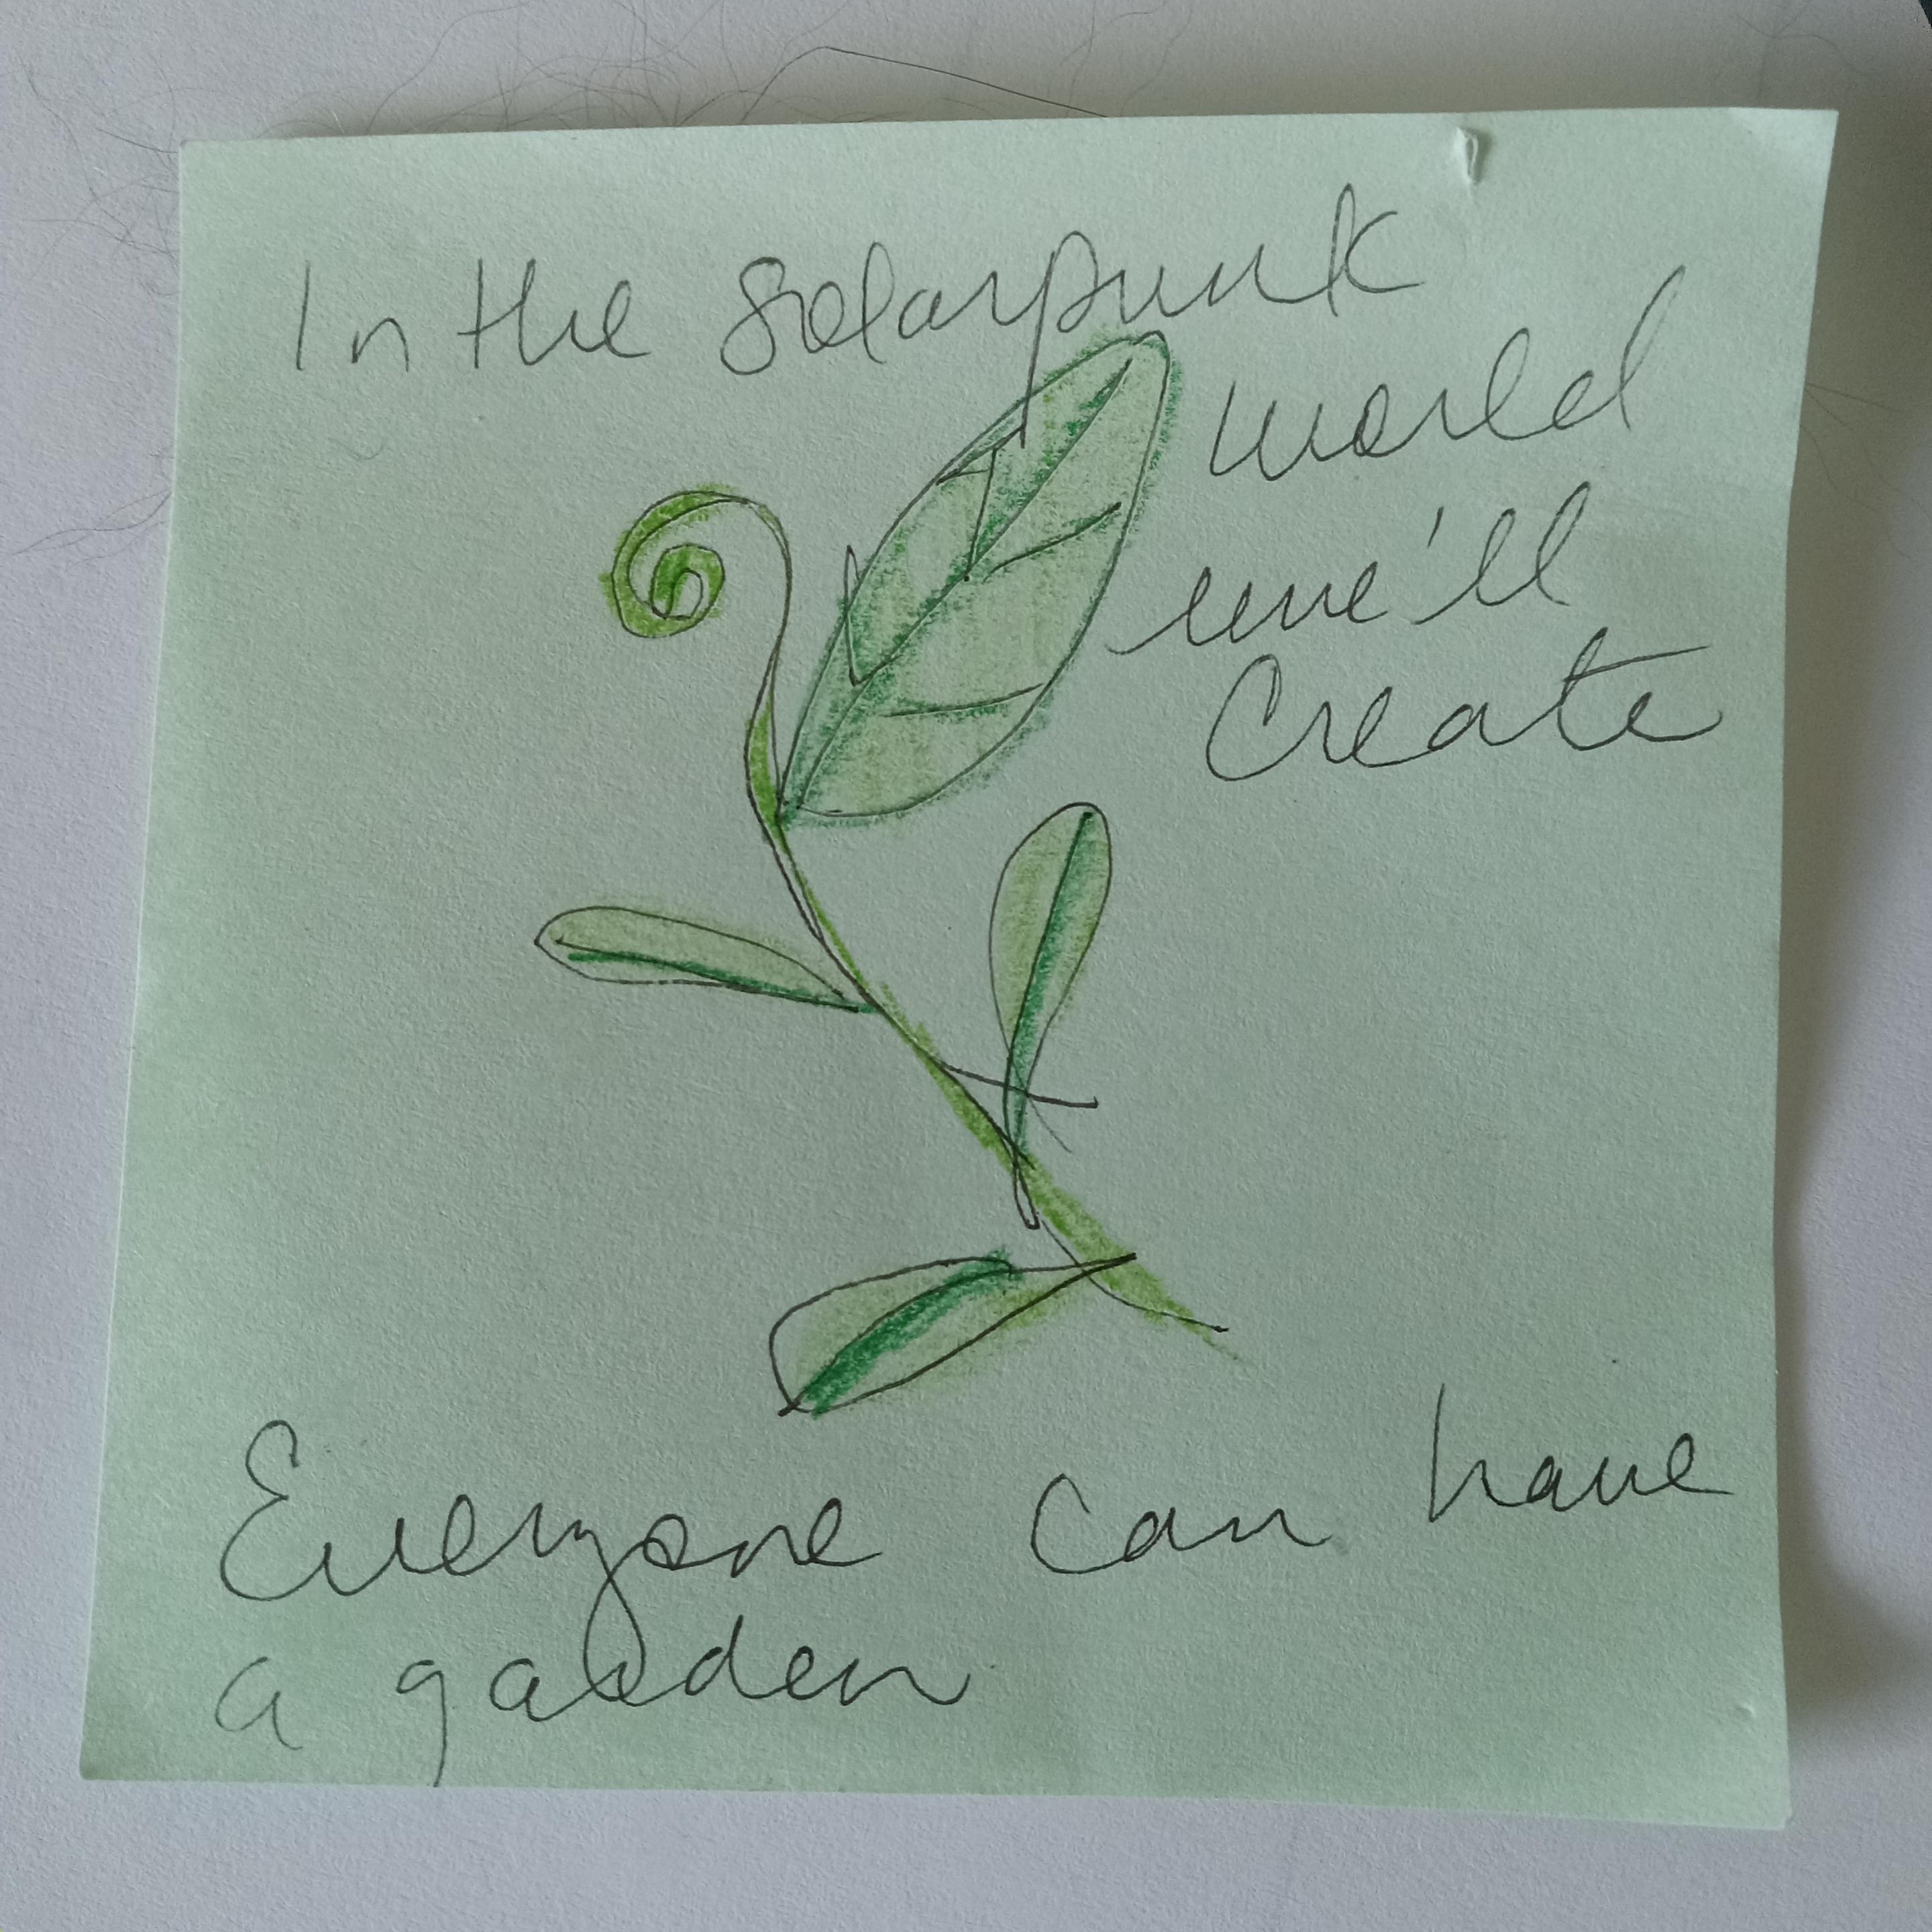 In the Solarpunk
world
we'll
Create
Everyone can have
a garden